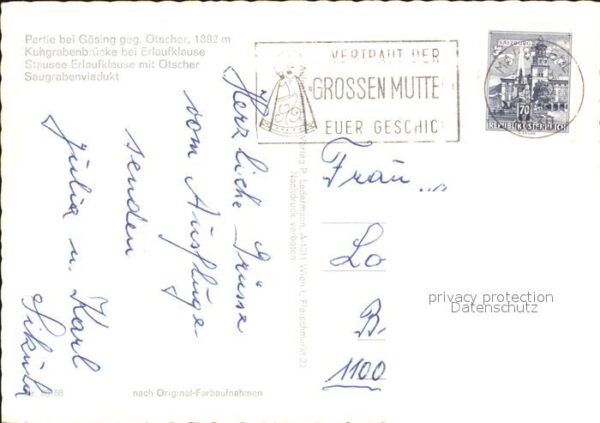 Partie bei Gösing geg. Ötscher, 1892 m
Kuhgrabenbrücke bei Erlaufklause
Stausee Erlaufklause mit Ötscher
Saugrabenviadukt
VERTRAUT DER
GROSSEN MUTTE
EUER GESCHIC
70
REPUBLIK ÖSTERREICH
Herzliche Grüsse
vom Ausfluge
senden
Julia u. Karl
Verlag P. Ledermann, A-1011 Wien I, Fleischmarkt 22
Nachdruck verboten
Frau
Lo
B.
1100
privacy protection
Datenschutz
nach Original-Farbaufnahmen